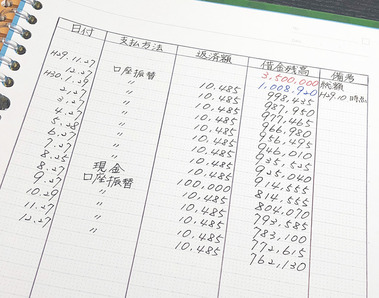 日付 支払方法 返済額 借金残高 備考
3,500,000 総額
1,008,920 H29.10時点
H29.11.27 口座振替 10,485 998,435
12.27 〃 10,485 987,950
H30.1.29 〃 10,485 977,465
2.27 〃 10,485 966,980
3.27 〃 10,485 956,495
4.27 〃 10,485 946,010
5.28 〃 10,485 935,525
6.27 〃 10,485 925,040
7.27 〃 10,485 914,555
8.25 現金 100,000 814,555
8.27 口座振替 10,485 804,070
9.27 〃 10,485 793,585
10.29 〃 10,485 783,100
11.27 〃 10,485 772,615
12.27 〃 10,485 762,130